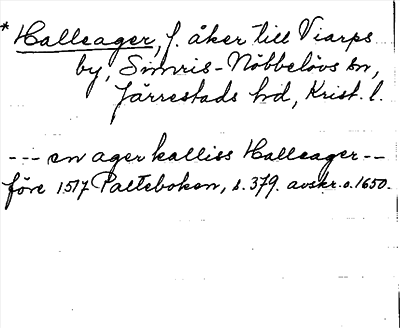 * Halleager, f. åker till Viarps
by, Simris-Nöbbelövs sn,
Järrestads hd, Krist. l.
--- en ager kalliss Halleager --
före 1517 Palteboken, s. 379. avskr. o. 1650.